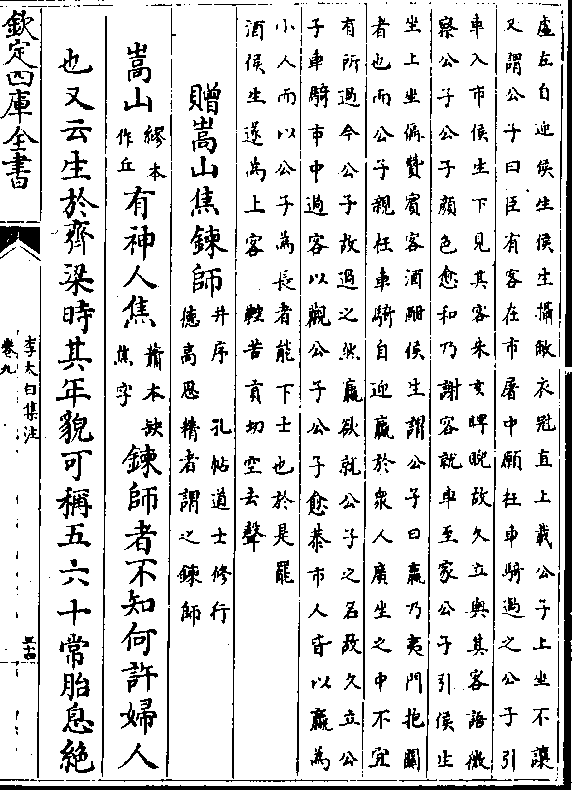 虛左自迎侯生侯生攝敝衣冠直上載公子上坐不讓
又謂公子曰臣有客在市屠中願枉車騎過之公子引
車入市侯生下見其客朱亥睥睨故久立與其客語微
察公子公子顔色愈和乃謝客就車至家公子引侯生
坐上坐徧贊賔客酒酣侯生謂公子曰嬴乃夷門抱關
者也而公子親枉車騎自迎嬴於衆人廣坐之中不宜
有所過今公子故過之然嬴欲就公子之名故久立公
子車騎市中過客以觀公子公子愈恭市人皆以嬴為
小人而以公子為長者能下士也於是罷
酒侯生遂為上客 輕苦貢切空去聲
贈嵩山焦鍊師 并序 孔帖道士修行
德高思精者謂之鍊師
嵩山 繆本
作丘 有神人焦 蕭本缺
焦字 鍊師者不知何許婦人
也又云生於齊梁時其年貌可稱五六十常胎息絶
欽定四庫全書
李太白集注
卷九